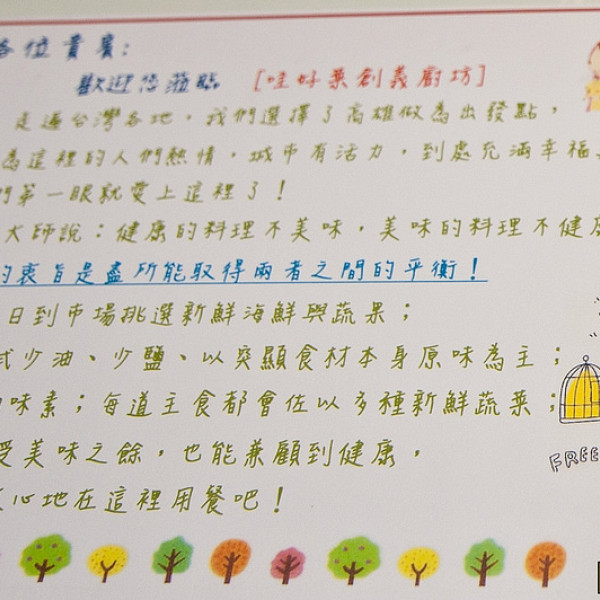 各位貴賓:
歡迎您蒞臨 [哇好菜創義廚坊]
走遍台灣各地，我們選擇了高雄做為出發點，
為這裡的人們熱情，城市有活力，到處充滿幸福
們第一眼就愛上這裡了！
大師說：健康的料理不美味，美味的料理不健康
的衷旨是盡所能取得兩者之間的平衡！
日到市場挑選新鮮海鮮與蔬果；
式少油、少鹽、以突顯食材本身原味為主；
味素；每道主食都會佐以多種新鮮蔬菜；
受美味之餘，也能兼顧到健康，
心地在這裡用餐吧！
FREE